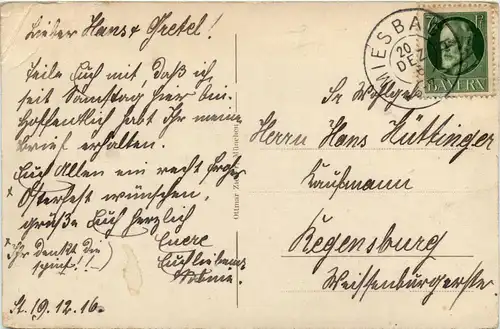 Lieber Hans & Gretel!
Teile Euch mit, daß ich
seit Samstag hier bin.
Hoffentlich habt Ihr meinen
Brief erhalten.
Euch Allen ein recht frohes
* Osterfest wünschen,
grüße Euch herzlich
Euere
Euchliebende
* (Ihr denkt die
spinnt!!)
St. 19.12.16.
Ottmar München
MIESBA
20
DEZ
7½ PF
BAYERN
Sr Wohlgeb
Herrn Hans Hüttinger
Kaufmann
Regensburg
Weissenburgerstr